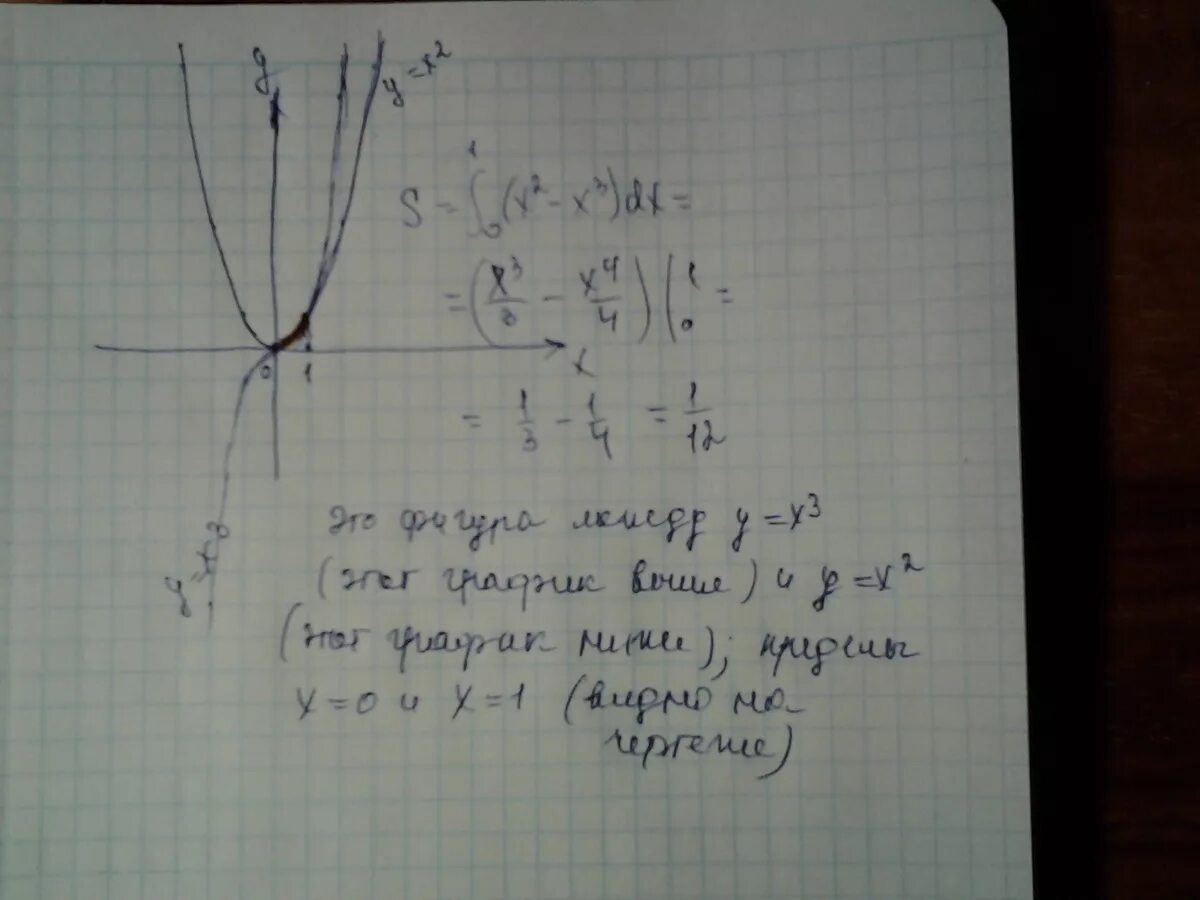 y
y = x²
S = ∫₀¹ (x² - x³) dx =
= (x³/3 - x⁴/4) |₀¹ =
x
0 1
= 1/3 - 1/4 = 1/12
y = x³
это фигура между y = x³
(этот график выше) и y = x²
(этот график ниже); пределы
x = 0 и x = 1 (видно на
чертеже)